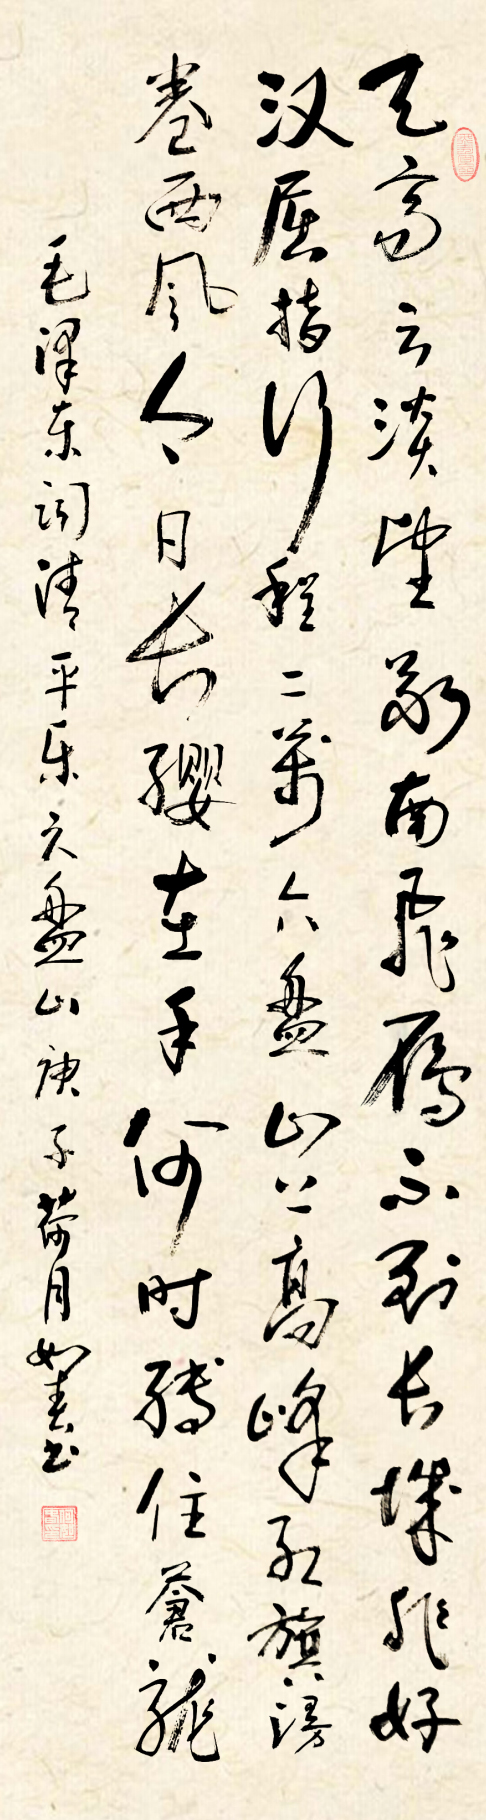 天高云淡望断南飞雁不到长城非好
汉屈指行程二萬六盘山上高峰红旗漫
卷西风今日长缨在手何时缚住蒼龍
毛泽东词清平乐六盘山庚子荷月如春书